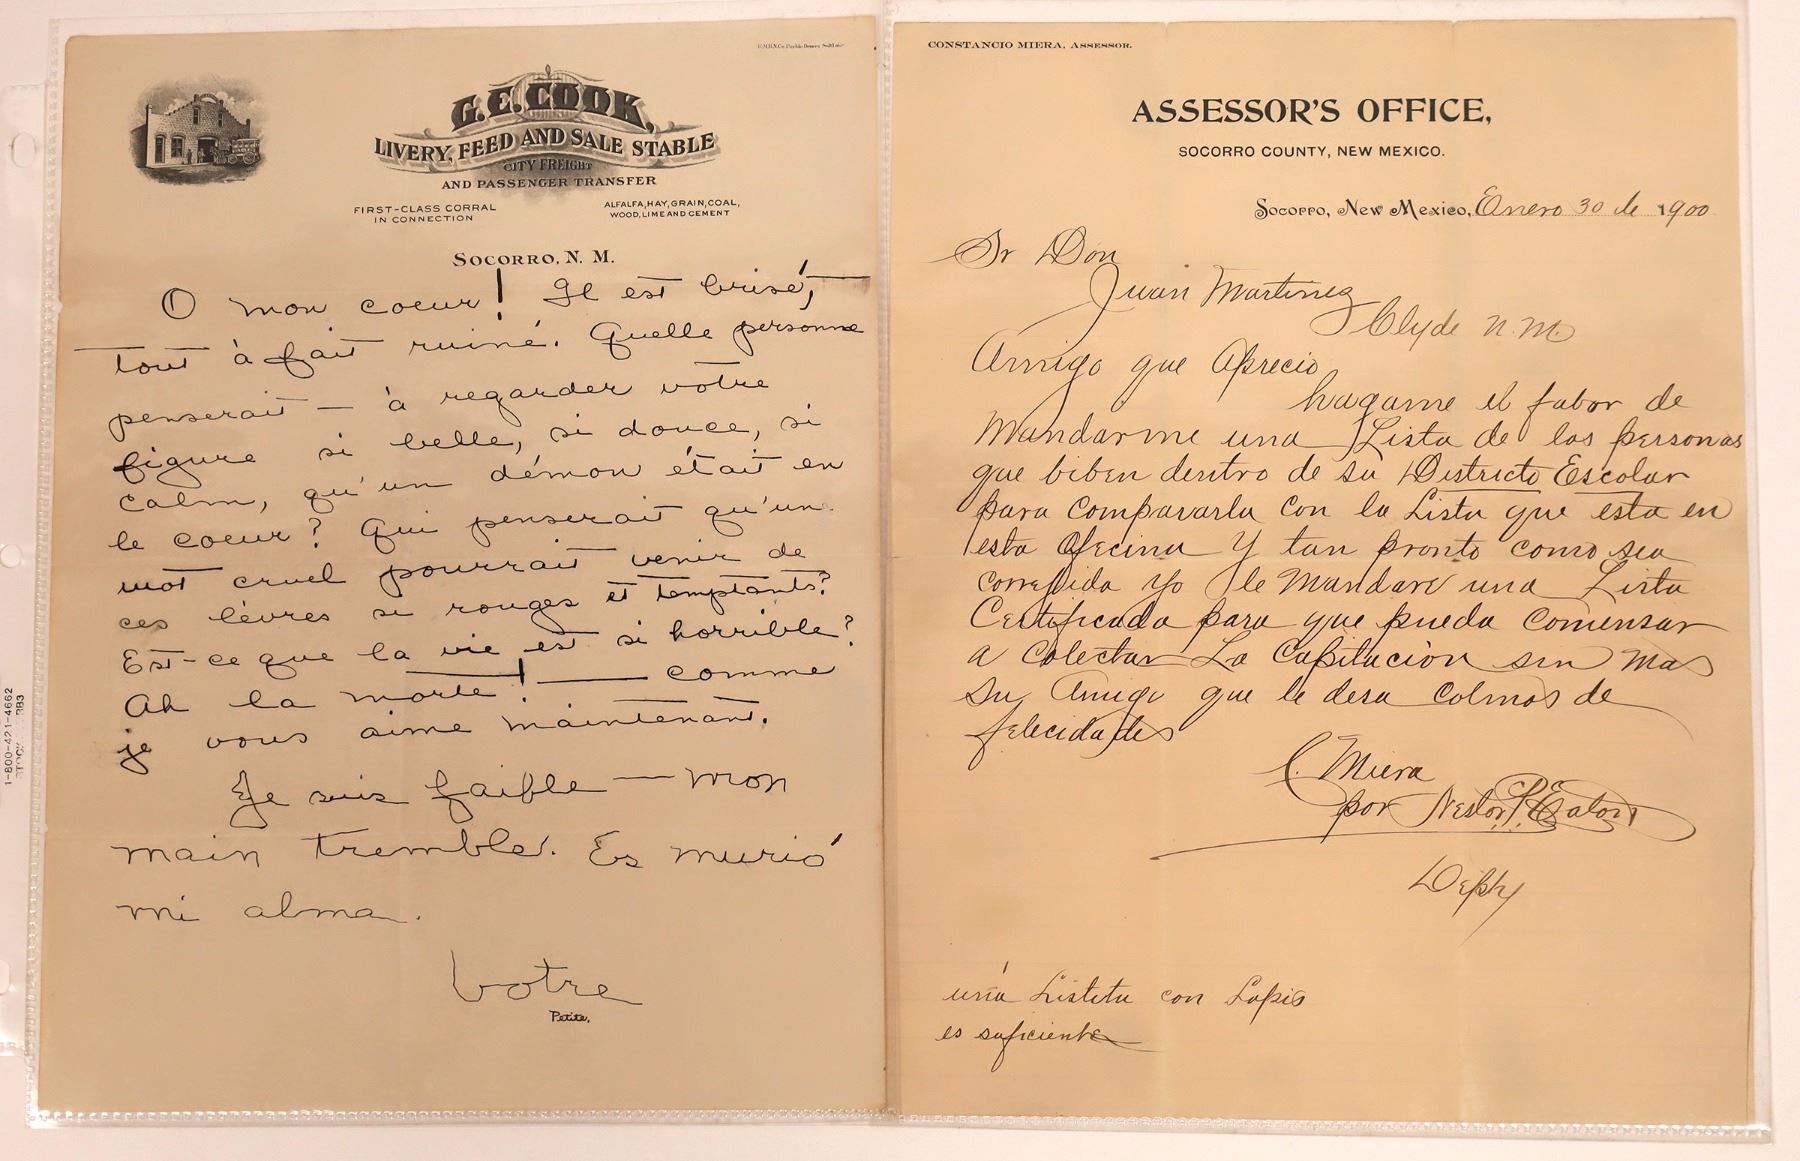 G. E. COOK,
LIVERY, FEED AND SALE STABLE
CITY FREIGHT
AND PASSENGER TRANSFER
FIRST-CLASS CORRAL
IN CONNECTION
ALFALFA, HAY, GRAIN, COAL,
WOOD, LIME AND CEMENT
SOCORRO, N. M.
O mon coeur! Il est brisé,
tout à fait ruiné. Quelle personne
penserait — à regarder votre
figure si belle, si douce, si
calm, qu'un démon était en
le coeur? Qui penserait qu'un
mot cruel pourrait venir de
ces lèvres si rouges et temptants?
Est-ce que la vie est si horrible?
Ah la morte! — comme
je vous aime maintenant.
Je suis faible — mon
main tremble. Es murió
mi alma.
Votre
Petite.
CONSTANCIO MIERA, ASSESSOR.
ASSESSOR'S OFFICE,
SOCORRO COUNTY, NEW MEXICO.
Socorro, New Mexico, Enero 30 de 1900
Sr Don
Juan Martinez
Clyde N.M.
Amigo que Aprecio
hagame el fabor de
Mandarme una Lista de las personas
que biben dentro de su Districto Escolar
para compararla con la Lista que esta en
esta Ofecina Y tan pronto como sea
correjida Yo le Mandare una Lista
Certificada para que pueda comensar
a Colectar La Capitación sin mas
su Amigo que le desa colmos de
felecidades
C. Miera
por Nestor P. Eaton
Depty
1-800-421-4662
una Listita con Lapis
es suficiente